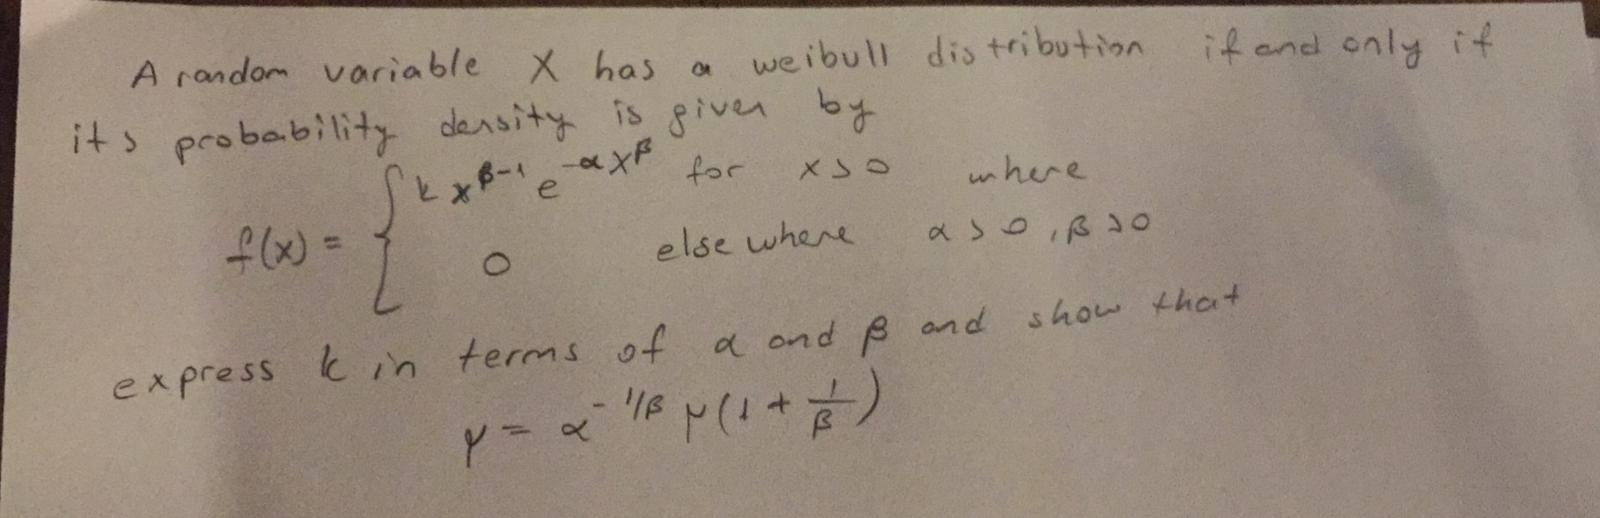 A random variable X has a weibull distribution if and only if
its probability density is given by
f(x) = { k x^{β-1} e^{-αx^β} for x>0 where
0 elsewhere α>0, β>0
express k in terms of α and β and show that
μ = α^{-1/β} μ(1 + 1/β)